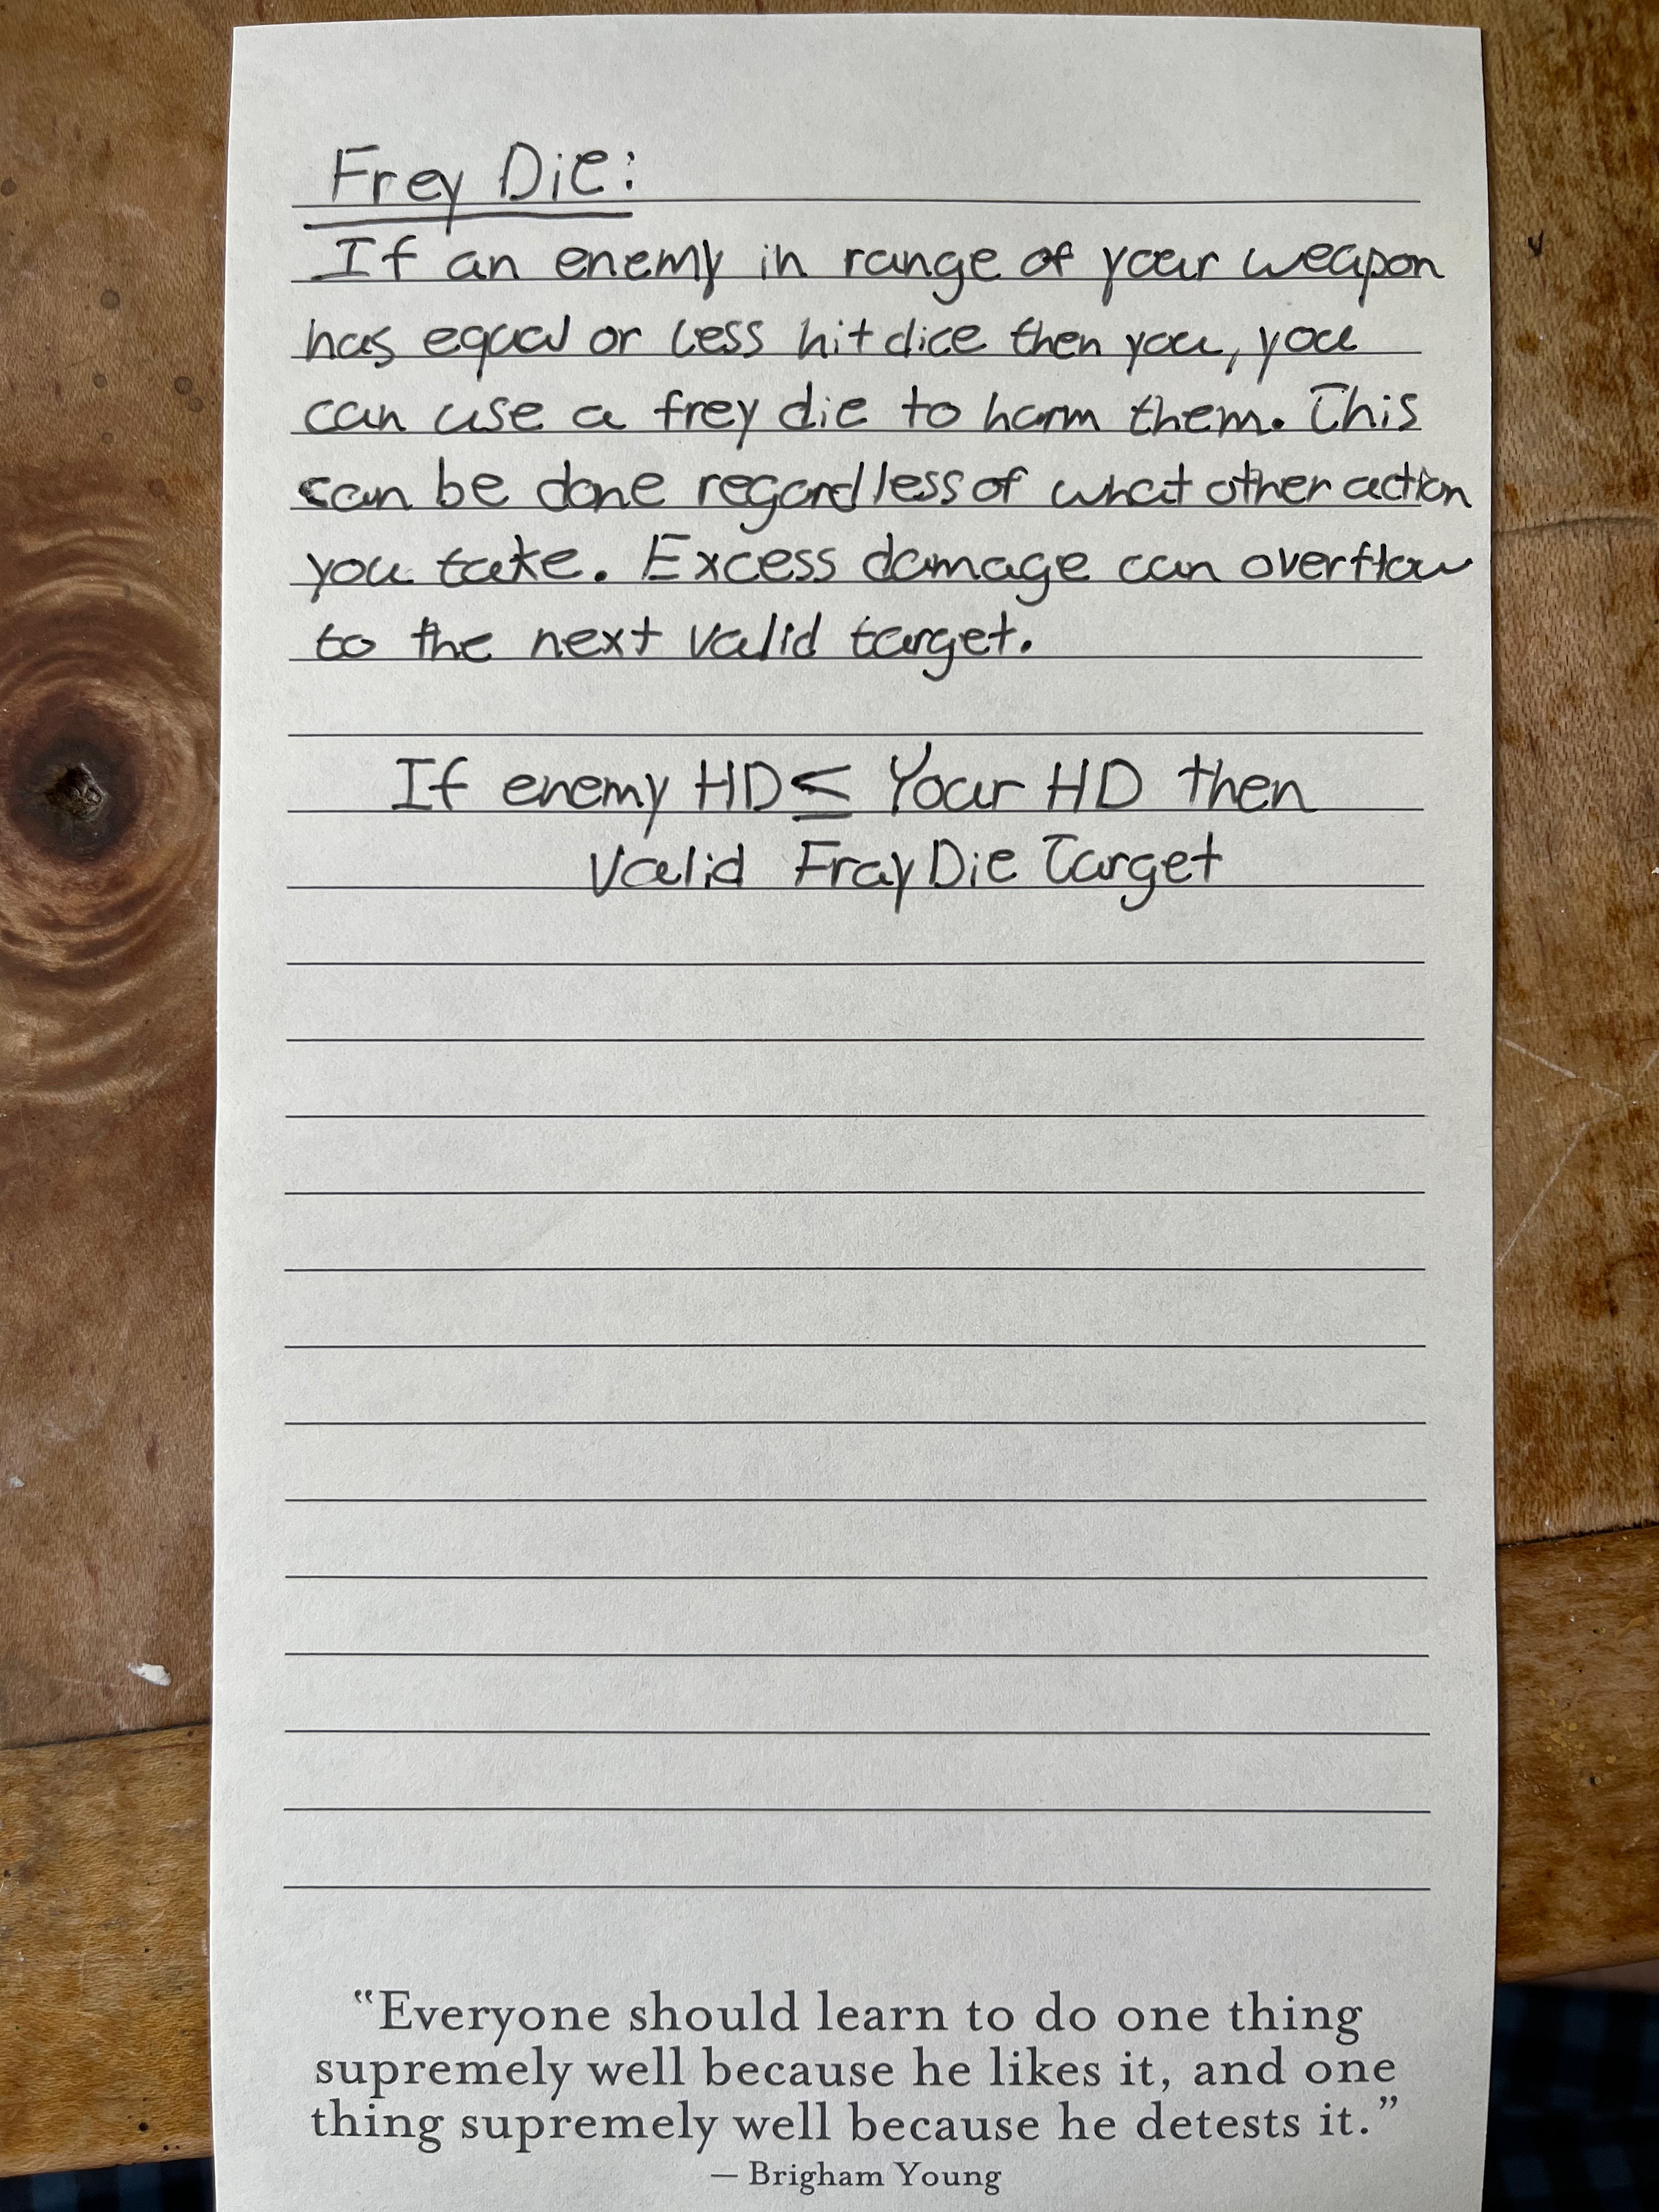 Frey Die:
If an enemy in range of your weapon
has equal or less hit dice then you, you
can use a frey die to harm them. This
can be done regardless of what other action
you take. Excess damage can overflow
to the next valid target.
If enemy HD ≤ Your HD then
Valid Fray Die Target
“Everyone should learn to do one thing
supremely well because he likes it, and one
thing supremely well because he detests it.”
— Brigham Young